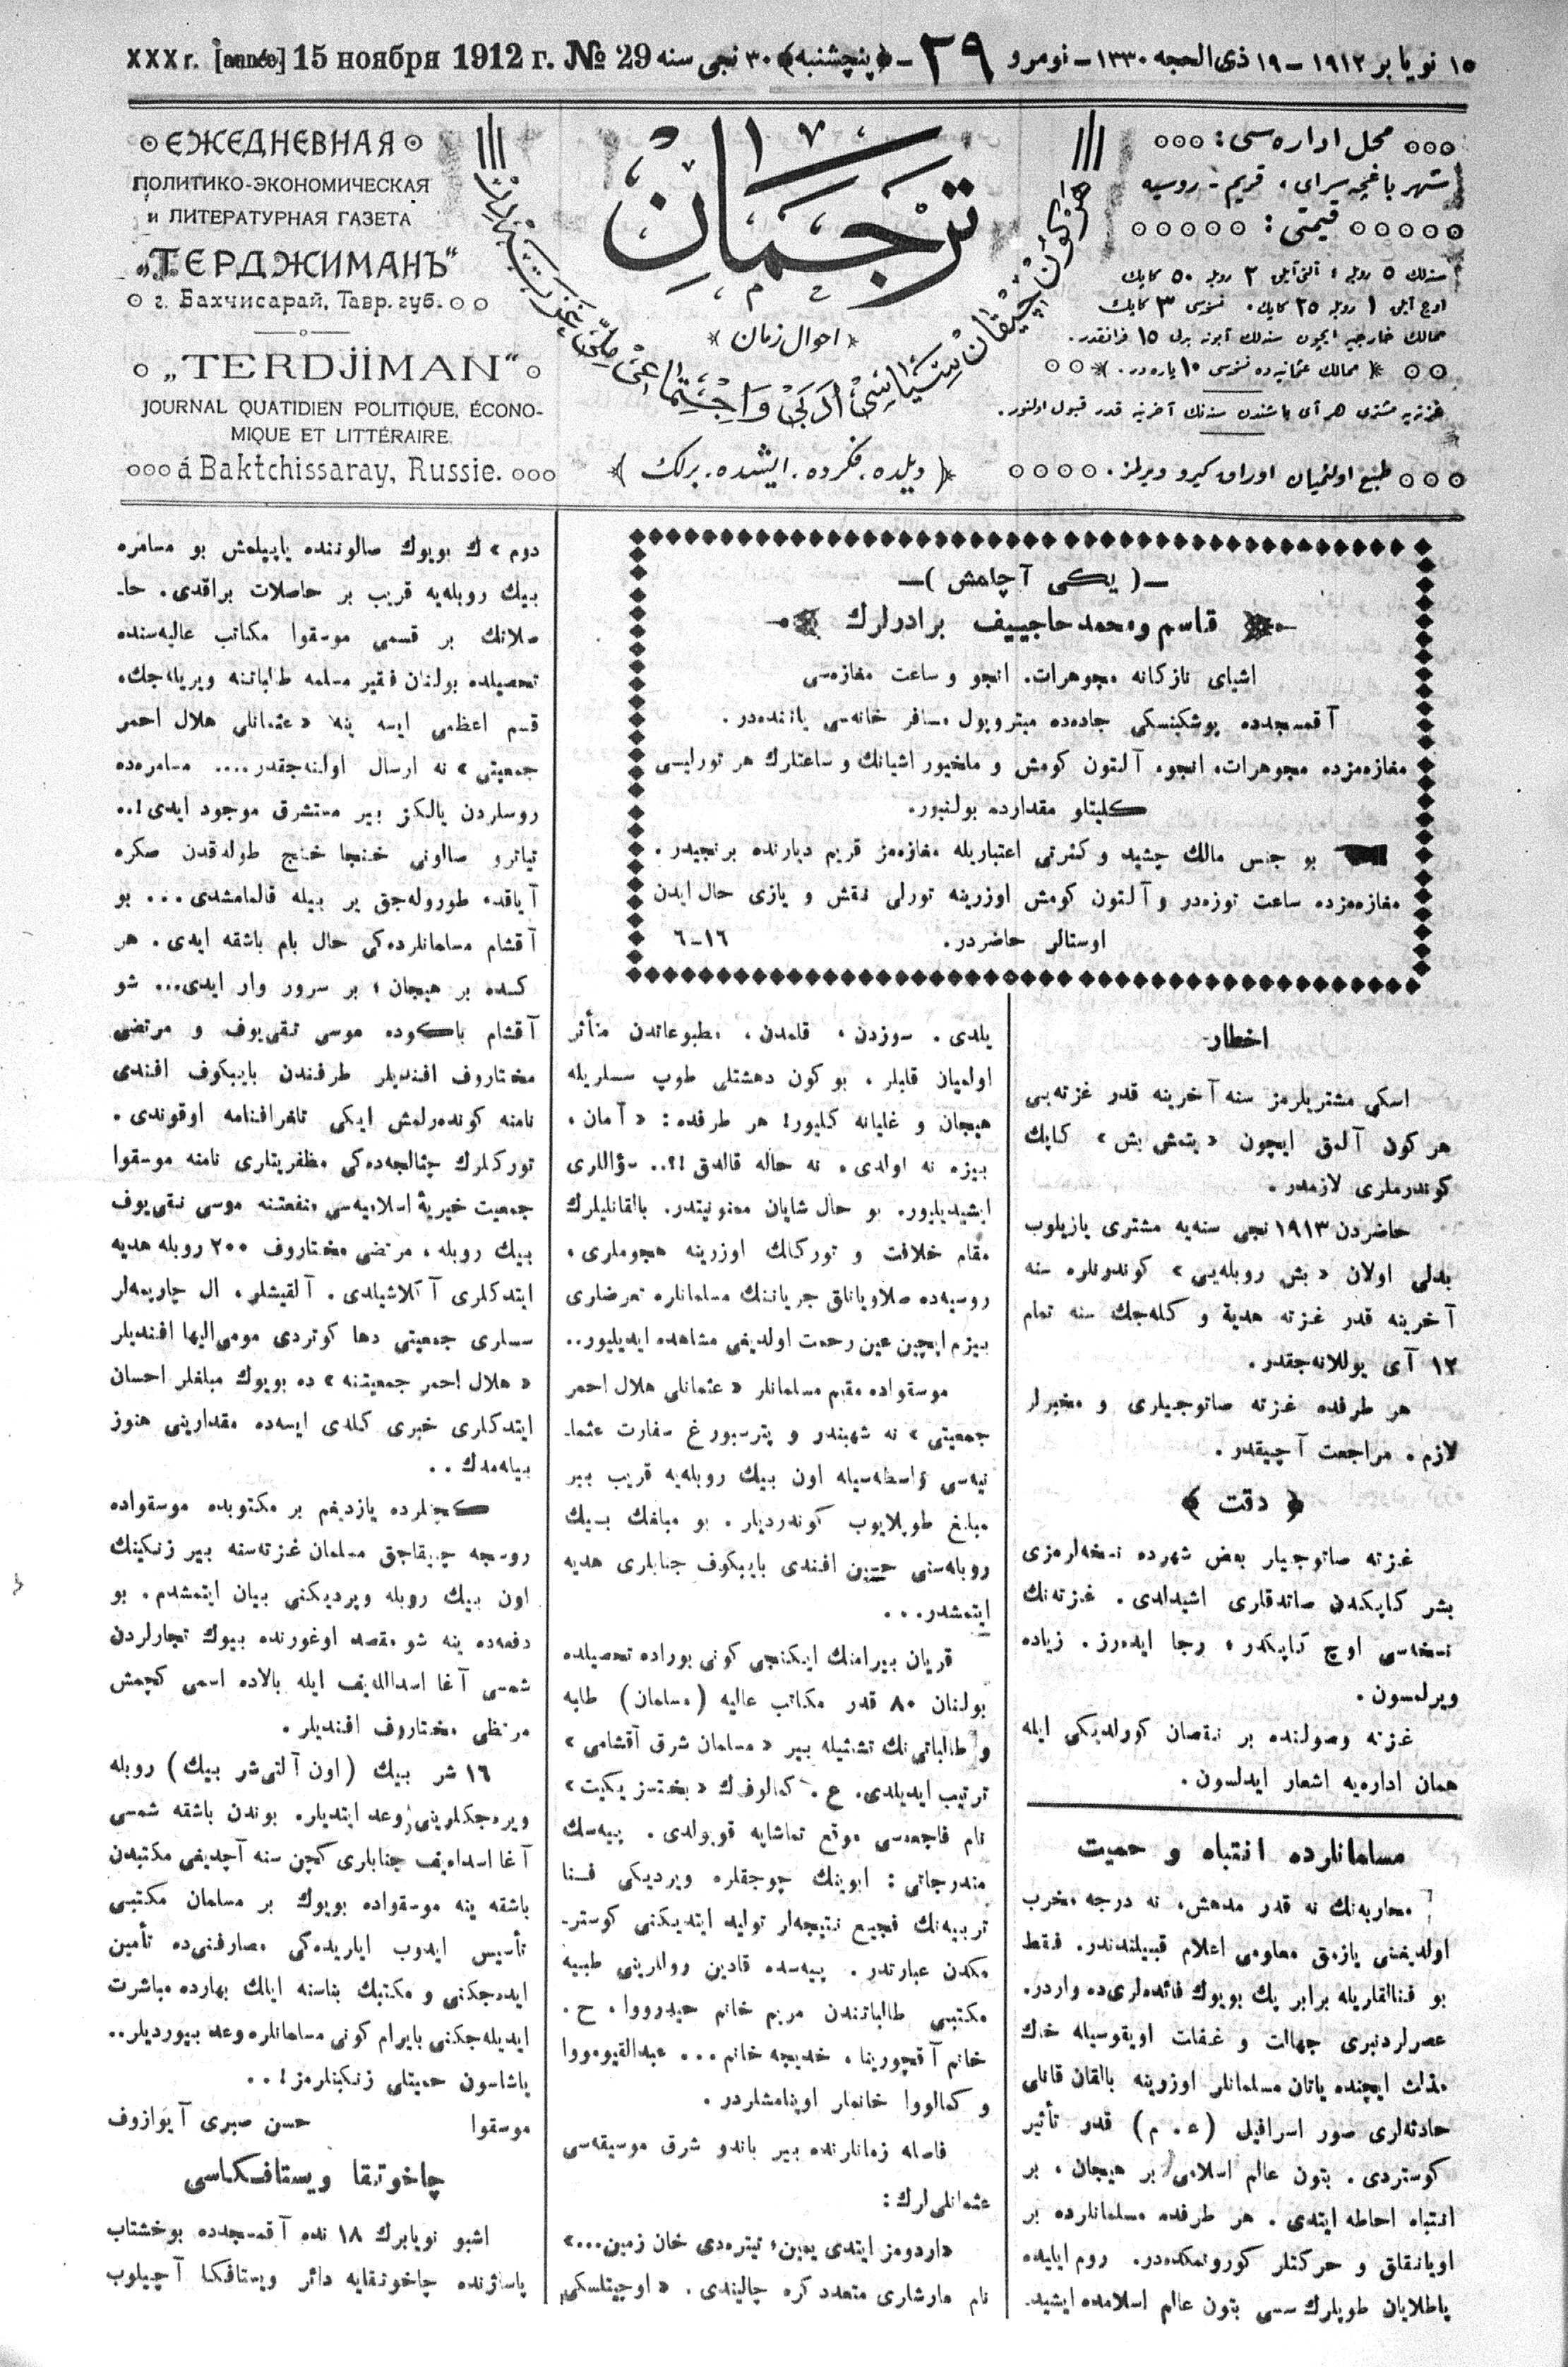 XXX г. [année] 15 ноября 1912 г. № 29 ۱۵ نویابر ۱۹۱۲ – ۱۹ ذی الحجه ۱۳۳۰ – نومرو ۲۹ – ﴿پنچشنبه﴾ ۳۰ نجی سنه
محل اداره سی :
شهر باغچه سرای ، قریم - روسیه
قیمتی :
سنه لك ۵ روبله ، آلتی آیلق ۲ روبله ۵۰ كاپك
اوچ آیلق ۱ روبله ۲۵ كاپك . نسخه سی ۳ كاپك
ممالك خارجیه ایچون سنه لك آبونه بدلی ۱۵ فرانقدر .
ممالك عثمانیه ده نسخه سی ۱۰ پاره در .
غزته یه مشتری هر آی باشندن سنه نك آخرینه قدر قبول اولنور .
طبع اولنمیان اوراق كیرو ویرلمز .
ترجمان
احوال زمان
هر كون چیقان سیاسی، ادبی و اجتماعی ملی غزته در
( دیلده . فكرده . ایشده . برلك )
ЕЖЕДНЕВНАЯ
ПОЛИТИКО-ЭКОНОМИЧЕСКАЯ
и ЛИТЕРАТУРНАЯ ГАЗЕТА
„ТЕРДЖИМАНЪ“
г. Бахчисарай, Тавр. губ.
„TERDJIMAN“
JOURNAL QUATIDIEN POLITIQUE, ÉCONO-
MIQUE ET LITTÉRAIRE
á Baktchissaray, Russie.
–( یكی آچلمش )–
قاسم و محمد حاجییف برادرلرك
اشیای نازكانه مجوهرات. انجو و ساعت مغازه سی
آقمسجدده پوشكینسكی جاده ده میتروپول مسافر خانه سی یاننده در .
مغازه مزده مجوهرات، انجو، آلتون كومش و ملخیور اشیانك و ساعتلرك هر تورلیسی
كلیتلو مقدارده بولنیور.
بو جنس مالك چشید و كثرتی اعتباریله مغازه مز قریم دیارنده برنجیدر .
مغازه مزده ساعت توزه در و آلتون كومش اوزرینه تورلی نقش و یازی حال ایدن
اوستالر حاضردر. ۱٦–٦
اخطار
اسكی مشتریلرمز سنه آخرینه قدر غزته یی
هر كون آلمق ایچون « یتمش بش » كاپك
كوندرملری لازمدر .
حاضردن ۱۹۱۳ نجی سنه یه مشتری یازیلوب
بدلی اولان « بش روبله یی » كوندرنلره سنه
آخرینه قدر غزته هدیة و كله جك سنه تمام
۱۲ آی یوللانه جقدر .
هر طرفده غزته صاتوجیلری و مخبرلر
لازم . مراجعت آچیقدر .
﴿ دقت ﴾
غزته صاتوجیلر بعض شهرده نسخه لرمزی
بشر كاپكدن صاتدقلری اشیدلدی . غزته نك
نسخه سی اوچ كاپكدر ، رجا ایده رز . زیاده
ویرلمسون .
غزته وصولنده بر نقصان كورلدیكی ایله
همان اداره یه اشعار ایدلسون .
مسلمانلرده انتباه و حمیت
محاربه نك نه قدر مدهش، نه درجه مخرب
اولدیغنی یازمق معلومی اعلام قبیلندندر. فقط
بو فنالقلریله برابر پك بویوك فائده لری ده واردر.
عصرلردنبری جهالت و غفلت اویقوسیله خاك
مذلت ایچنده یاتان مسلمانلر اوزرینه بالقان قانلی
حادثه لری صور اسرافیل (ع . م) قدر تأثیر
كوستردی . بتون عالم اسلامی بر هیجان ، بر
انتباه احاطه ایتدی . هر طرفده مسلمانلرده بر
اویانقلق و حركتلر كورونمكده در. روم ایلیده
پاطلایان طوپلرك سسی بتون عالم اسلامده ایشید-
یلدی . سوزدن ، قلمدن ، مطبوعاتدن متأثر
اولمیان قلبلر ، بوكون دهشتلی طوپ سسلریله
هیجان و غلیانه كلیور! هر طرفده : « آمان ،
بیزه نه اولدی، نه حاله قالدق !؟.. سؤاللری
ایشیدیلیور. بو حال شایان ممنونیتدر. بالقانلیلرك
مقام خلافت و توركلك اوزرینه هجوملری ،
روسیه ده صلاویانلق جریاننك مسلمانلره تعرضلری
بیزم ایچین عین رحمت اولدیغی مشاهده ایدیلیور..
موسقواده مقیم مسلمانلر « عثمانلی هلال احمر
جمعیتی » نه شهبندر و پترسبورغ سفارت عثما-
نیه سی واسطه سیله اون بیك روبله یه قریب بیر
مبلغ طوپلایوب كوندردیلر . بو مبلغك بیك
روبله سنی حسین افندی بایبكوف جنابلری هدیه
ایتمشدر...
قربان بیرامنك ایكنجی كونی بوراده تحصیلده
بولنان ۸۰ قدر مكاتب عالیه (مسلمان) طلبه
و طالباتی نك تشبثیله بیر « مسلمان شرق آقشامی »
ترتیب ایدیلدی. ع . كمالوفك « بختسز یكیت »
نام فاجعه سی موقع تماشایه قویولدی . پیه سك
مندرجاتی : ابوینك چوجقلره ویردیكی فنا
تربیه نك فجیع نتیجه لر تولید ایتدیكنی كوستر-
مكدن عبارتدر . پیه سده قادین روللرینی طبیه
مكتبی طالباتندن مریم خانم حیدرووا ، ح .
خانم آقچورینا ، خدیجه خانم ... عبدالقیومووا
و كمالووا خانملر اوینامشلردر .
فاصله زمانلرنده بیر باندو شرق موسیقه سی
عثمانلی لرك :
«اردومز ایتدی یمین، تیتره دی خان زمین...»
نام مارشلری متعدد كره چالیندی . « اوچیتلسكی
دوم » ك بویوك صالوننده یاپیلمش بو مسامره
بیك روبله یه قریب بر حاصلات براقدی . حا-
صلاتك بر قسمی موسقوا مكاتب عالیه سنده
تحصیلده بولنان فقیر مسلمه طالباتنه ویریله جك،
قسم اعظمی ایسه ینه « عثمانلی هلال احمر
جمعیتی » نه ارسال اولنه جقدر.... مسامره ده
روسلردن یالكز بیر مستشرق موجود ایدی !..
تیاترو صالونی خنجا خنج طولدقدن صكره
آیاقده طوروله جق یر بیله قالمامشدی ... بو
آقشام مسلمانلرده كی حال بام باشقه ایدی . هر
كسده بر هیجان ، بر سرور وار ایدی... شو
آقشام باكوده موسی نقی یوف و مرتضی
مختاروف افندیلر طرفندن بایبكوف افندی
نامنه كوندرلمش ایكی تلغرافنامه اوقوندی .
توركلرك چتالجه ده كی مظفریتلری نامنه موسقوا
جمعیت خیریهٔ اسلامیه سی منفعتنه موسی نقی یوف
بیك روبله ، مرتضی مختاروف ۲۰۰ روبله هدیه
ایتدكلری آكلاشیلدی . آلقیشلر، ال چارپمه لر
سسلری جمعیتی دها كوتردی مومی الیها افندیلر
« هلال احمر جمعیتنه » ده بویوك مبلغلر احسان
ایتدكلری خبری كلدی ایسه ده مقدارینی هنوز
بیله مدك ..
كچنلرده یازدیغم بر مكتوبده موسقواده
روسجه چیقاجق مسلمان غزته سنه بیر زنكینك
اون بیك روبله ویردیكنی بیان ایتمشدم . بو
دفعه ده ینه شو مقصد اوغورنده بیوك تجارلردن
شمسی آغا اسداللەیف ایله بالاده اسمی كچمش
مرتظی مختاروف افندیلر .
۱٦ شر بیك (اون آلتی شر بیك) روبله
ویره جكلرینی وعد ایتدیلر. بوندن باشقه شمسی
آغا اسداللەیف جنابلری كچن سنه آچدیغی مكتبدن
باشقه ینه موسقواده بویوك بر مسلمان مكتبی
تأسیس ایدوب ایلریده كی مصارفنی ده تأمین
ایده جكنی و مكتبك بناسنه ایلك بهارده مباشرت
ایدیله جكنی بایرام كونی مسلمانلره وعد بیوردیلر..
یاشاسون حمیتلی زنكینلرمز!..
موسقوا حسن صبری آیوازوف
چاخوتقا ویستافكاسی
اشبو نویابرك ۱۸ نده آقمسجدده بوخشتاب
پاساژنده چاخوتقایه دائر ویستافكا آچیلوب